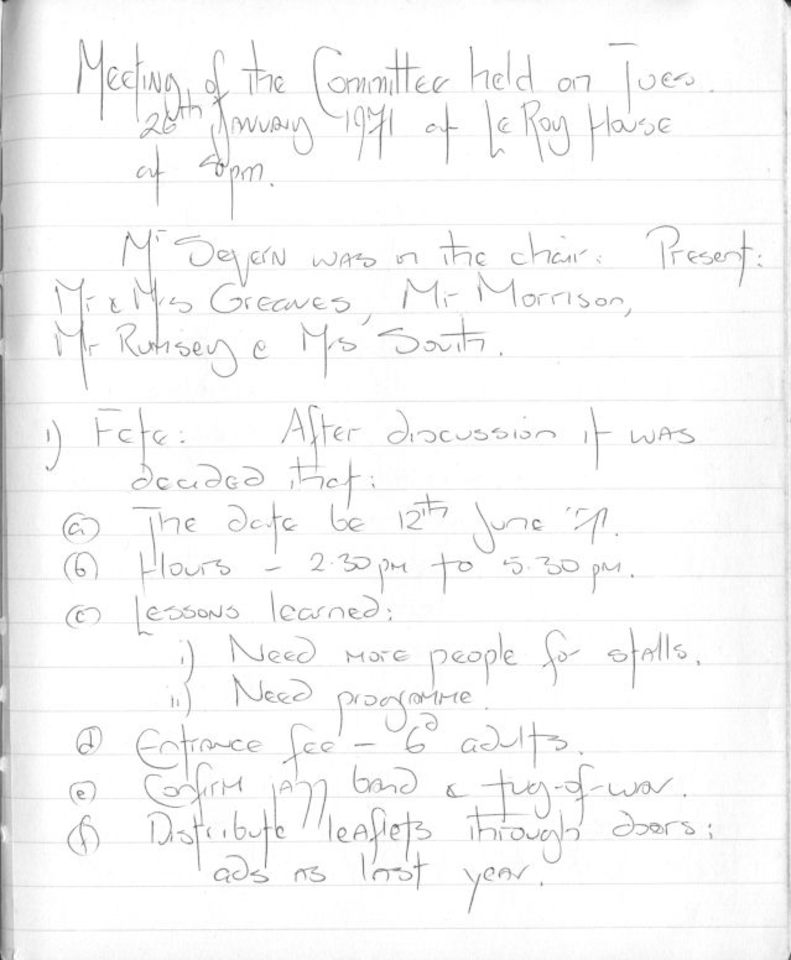 Meeting of the Committee held on Tues.
26th January 1971 at Le Roy House
at 8pm.
Mr Severn was in the chair. Present:
Mr & Mrs Greaves, Mr Morrison,
Mr Rumsey & Mrs South.
1) Fete: After discussion it was
decided that:
(a) The date be 12th June '71.
(b) Hours - 2.30pm to 5.30pm.
(c) Lessons learned:
i) Need more people for stalls.
ii) Need programme.
(d) Entrance fee - 6d adults.
(e) Confirm jazz band & tug-of-war.
(f) Distribute leaflets through doors:
ads as last year.